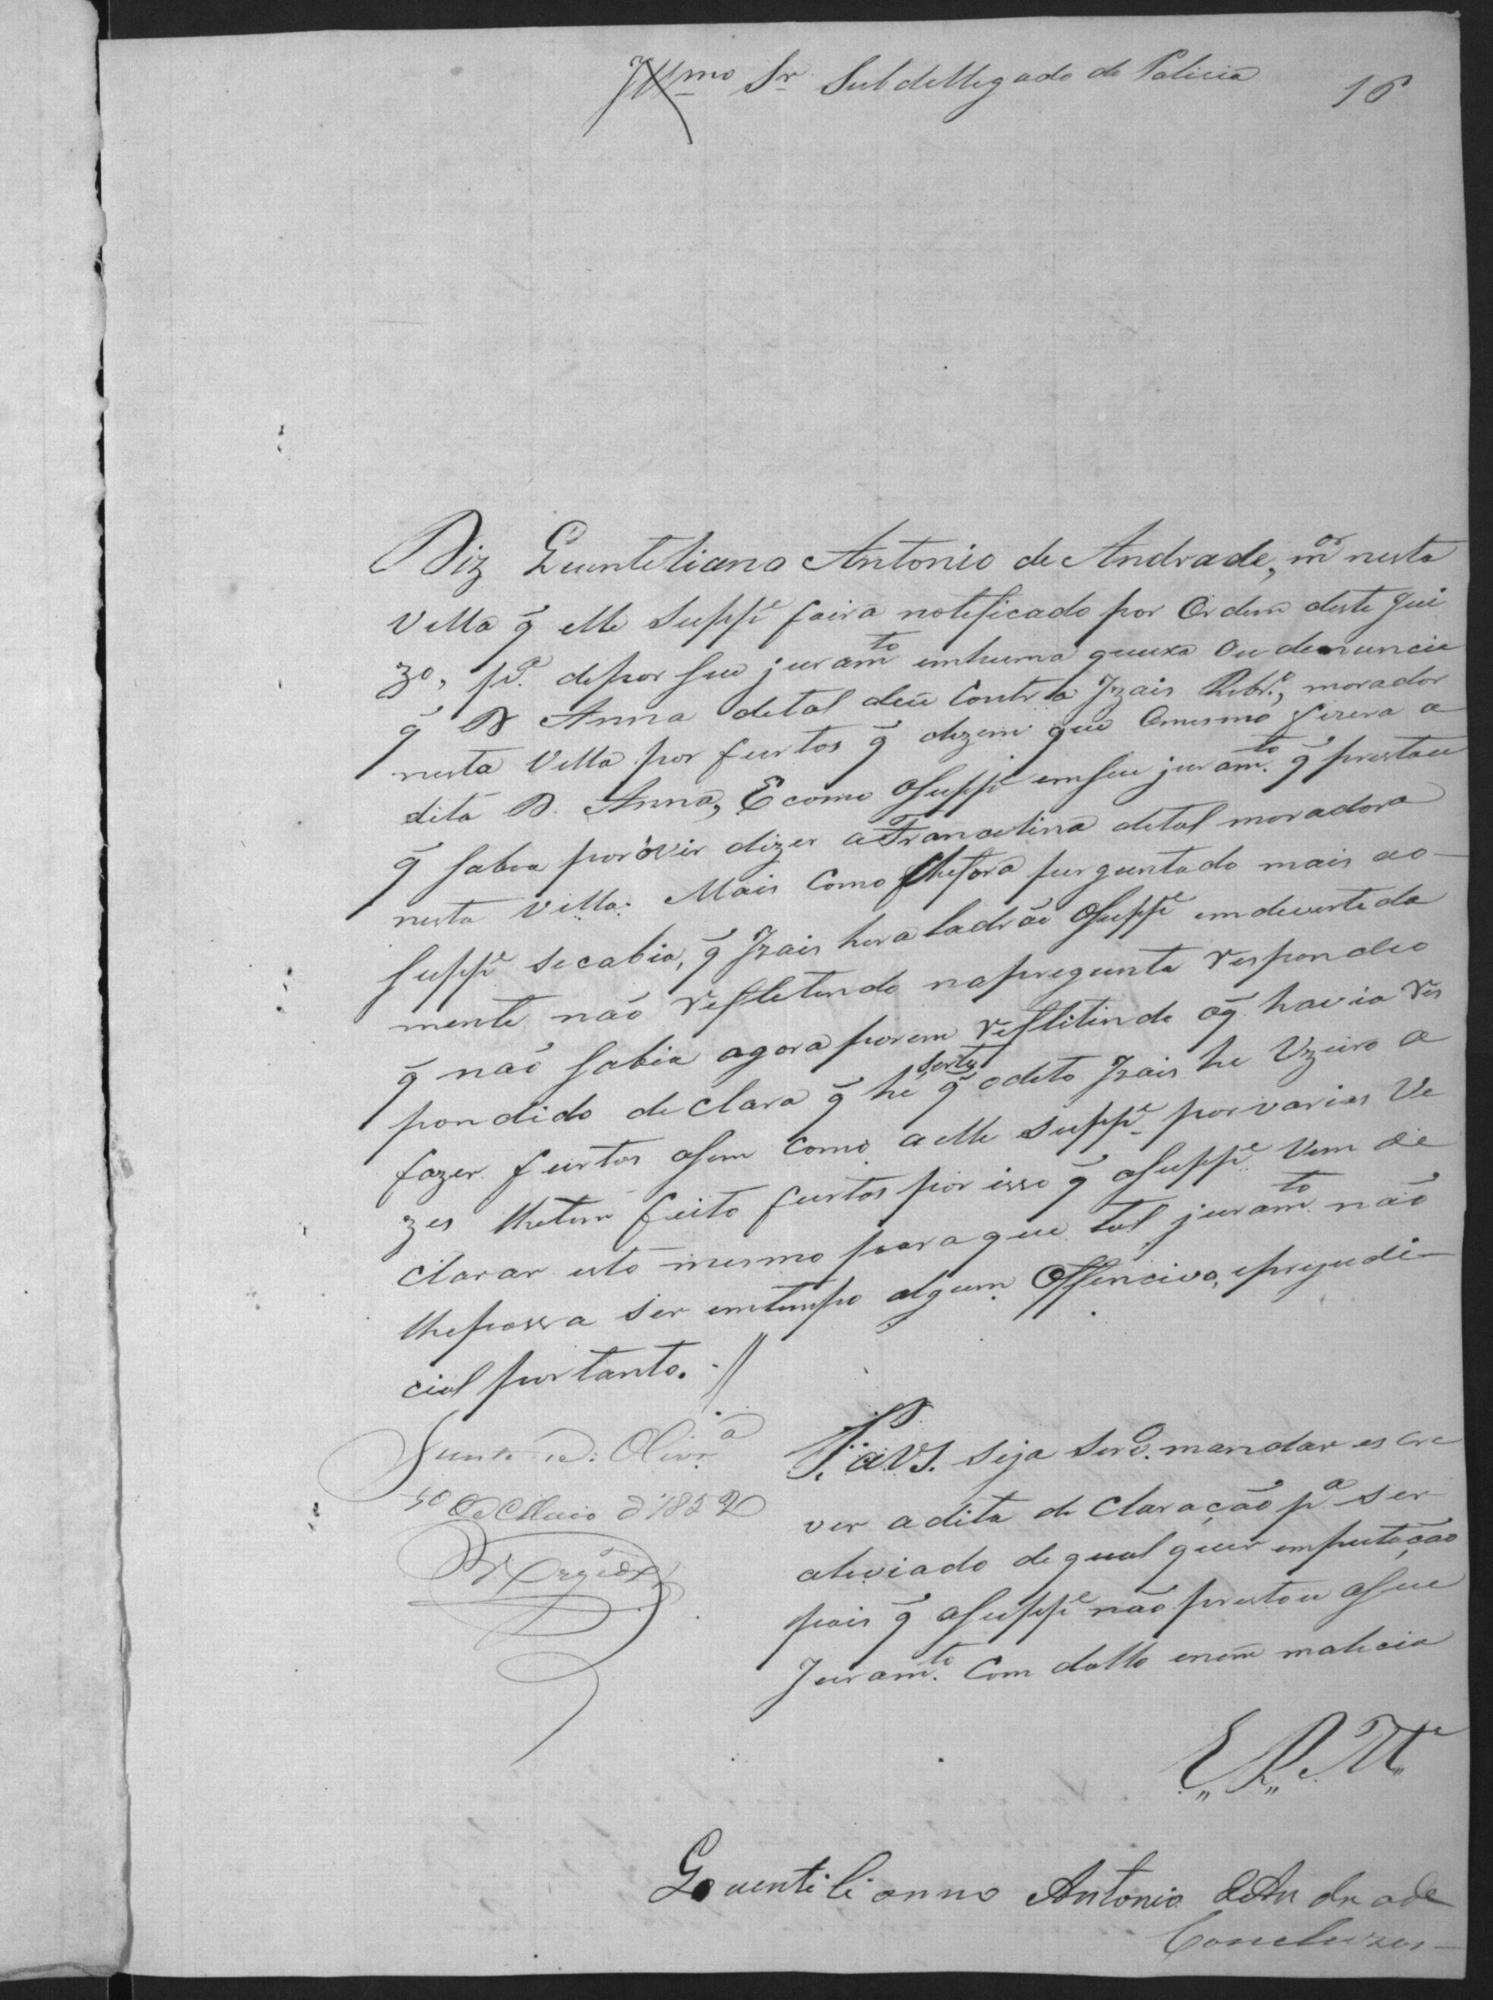 Illmo Sr Subdellegado de Policia
16
Diz Quintiliano Antonio de Andrade, mor nesta
Villa q̃ elle Suppe foira notificado por Ordem deste Jui
zo, pa. depor seu juramto em huma queixa Ou denuncia
q̃ D Anna de tal deu Contra Izais Ribro, morador
nesta Villa por furtos q̃ dizem que Omesmo fizera a
dita D. Anna, E como oSuppe em seu juramto. q̃ prestou
q̃ sabia por ovir dizer a Francelina de tal moradora
nesta Villa: Mais Como lhe fora perguntado mais ao
Suppe se cabia, q̃ Izais hera ladrão oSuppe emdevertida
mente não refletindo napregunta respondeo
q̃ não sabia agora porem reflitindo oq̃ havia res
pondido declara q̃ hé serto q̃ odito Izais he Uzeiro a
fazer furtos asim como a elle Suppe por varias Ve
zes lhe tem feito furtos por isso q̃ oSuppe Vem de
clarar isto mesmo para que tal juramto não
lhepossa ser emtempo algum Offencivo, eprejudi
cial portanto. //
P. a VS. seja servo. mandar escre
ver adita declaração pa ser
aleviado de qual quer emputação
pois q̃ oSuppe não prestou oseu
Juramto. Com dollo enem malicia
Junte-se: Olivra
10 de Maio d 1852
E. R. Mce
Quentilianno Antonio de An drade
Concluzos